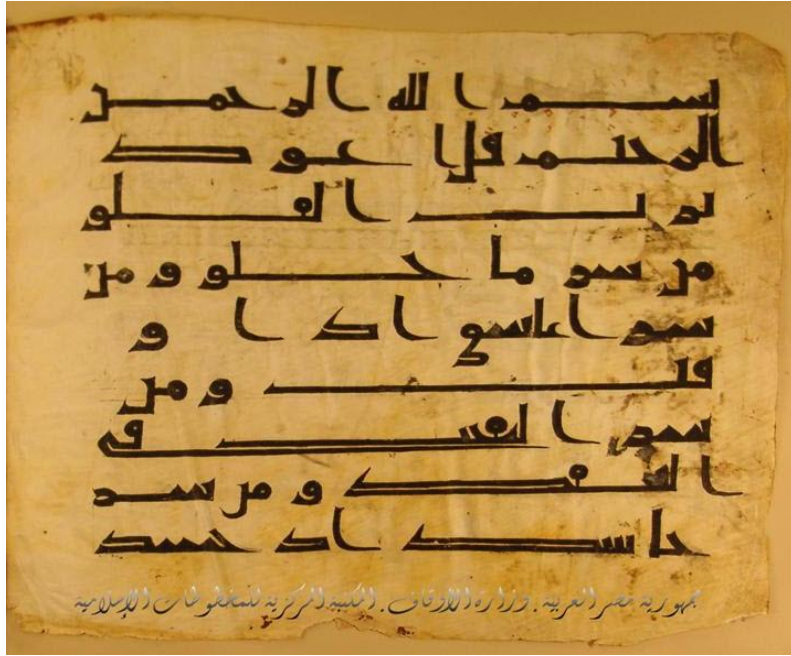 بسم الله الرحمن
الرحيم قل اعوذ
برب الفلق
من شر ما خلق و من
شر اغاسق اذا و
قب و من
شر النفثت في
العقد و من شر
حاسد اذ حسد
جمهورية مصر العربية . وزارة الأوقاف . المكتبة المركزية للمخطوطات الإسلامية